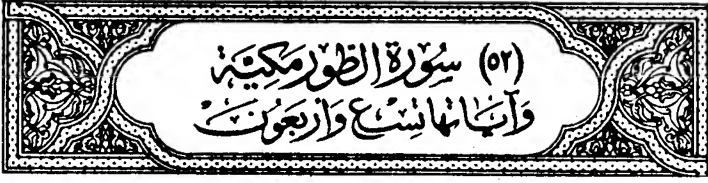 (٥٢) سُورَة الطُّورِ مَكِيَّة
وَآيَاتُهَا تِسْعٌ وَأَرْبَعُونَ